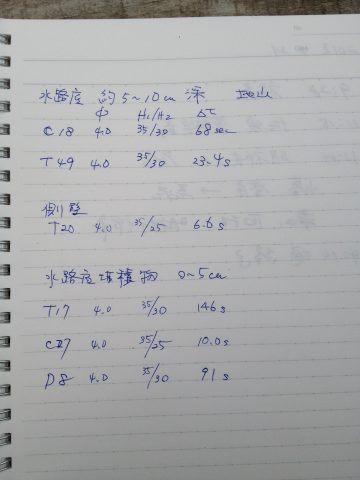 水路底 約5~10cm 深 地山
Φ H1/H2 ΔT
C18 4.0 35/30 68sec
T49 4.0 35/30 23.4s
側壁
T20 4.0 35/25 6.6s
水路底堆積物 0~5cm
T17 4.0 35/30 146s
C27 4.0 35/25 10.0s
D8 4.0 35/30 91s